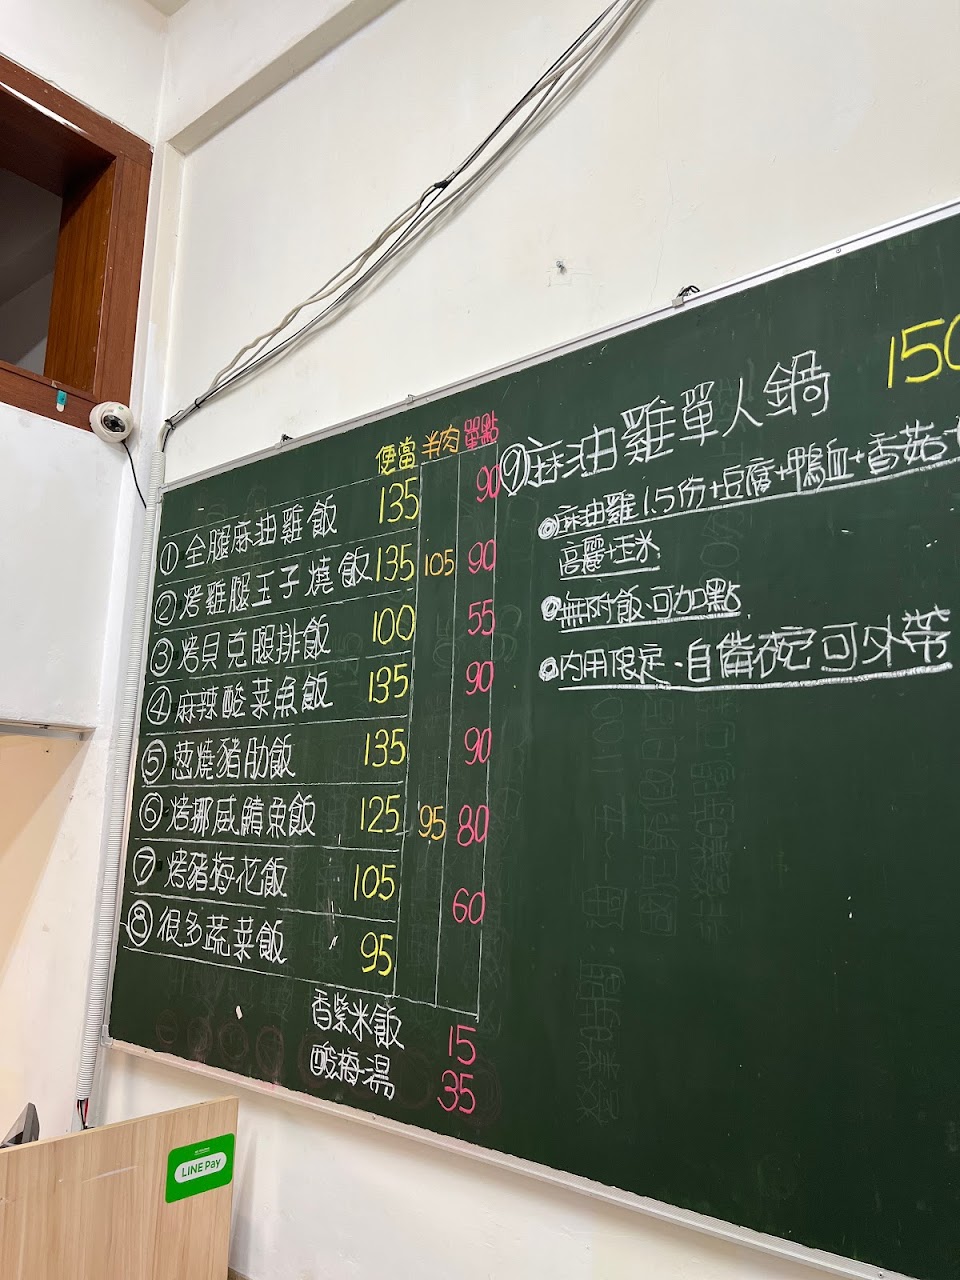 便當 半肉 單點
①全腿麻油雞飯 135 90
②烤雞腿玉子燒飯 135 105 90
③烤貝克腿排飯 100 55
④麻辣酸菜魚飯 135 90
⑤蔥燒豬肋飯 135 90
⑥烤挪威鯖魚飯 125 95 80
⑦烤豬梅花飯 105 60
⑧很多蔬菜飯 95
香紫米飯 15
酸梅湯 35
⑨麻油雞單人鍋 150
◎麻油雞1.5份+豆腐+鴨血+香菇+
高麗+玉米
◎無附飯、可加點
◎內用限定-自備碗可外帶
LINE Pay